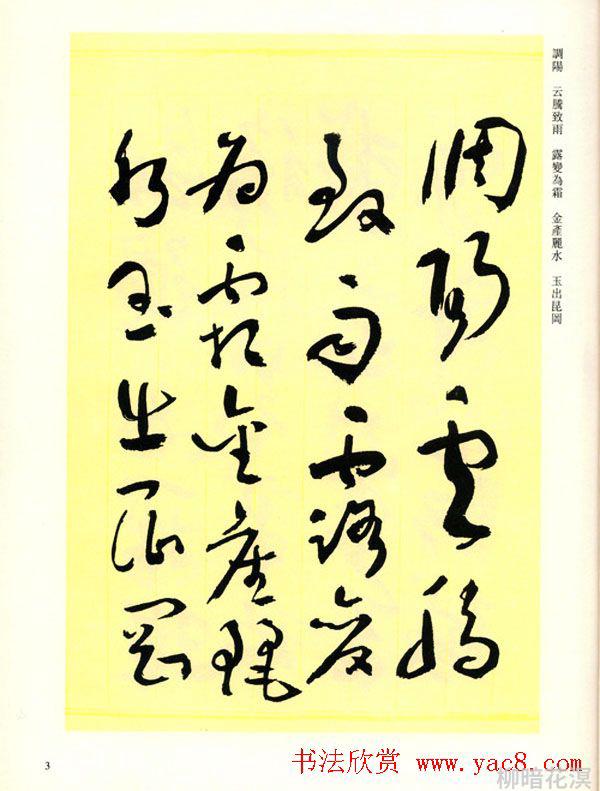 調陽 云騰致雨 露變為霜 金產麗水 玉出昆岡
調陽雲騰
致雨露變
為霜金產麗
水玉出崑岡
3
书法欣赏 www.yac8.com
柳暗花溟